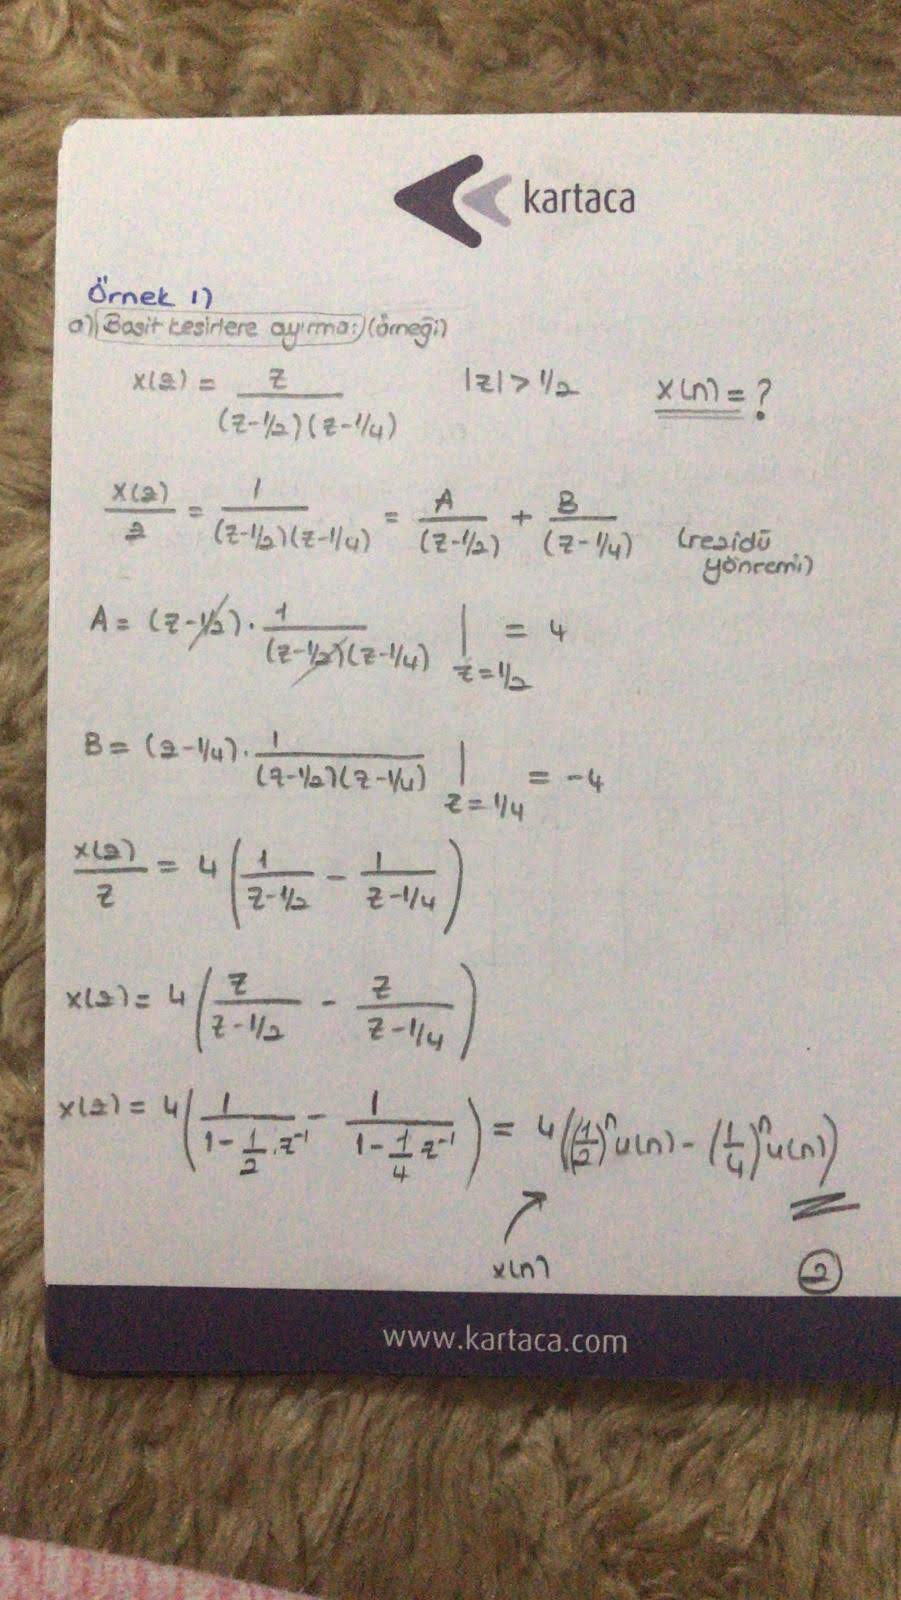 kartaca
Örnek 1)
a) Basit kesirlere ayırma: (örneği)
x(z) = z / (z-1/2)(z-1/4) |z| > 1/2 x(n) = ?
x(z)/z = 1 / (z-1/2)(z-1/4) = A / (z-1/2) + B / (z-1/4) (rezidü
yöntemi)
A = (z-1/2) · 1 / (z-1/2)(z-1/4) | z=1/2 = 4
B = (z-1/4) · 1 / (z-1/2)(z-1/4) | z=1/4 = -4
x(z)/z = 4 ( 1 / z-1/2 - 1 / z-1/4 )
x(z) = 4 ( z / z-1/2 - z / z-1/4 )
x(z) = 4 ( 1 / 1-1/2.z⁻¹ - 1 / 1-1/4 z⁻¹ ) = 4 ((1/2)ⁿ u(n) - (1/4)ⁿ u(n))
x(n)
2
www.kartaca.com